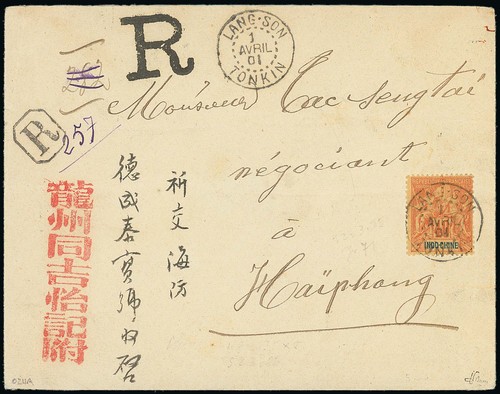 R
LANG-SON
1
AVRIL
01
TONKIN
R
257
Monsieur Tac Sengtai
négociant
à
Haïphong
LANG-SON
1
AVRIL
01
INDO-CHINE
祈交海防
德成泰寶號收啓
龍州同吉怡記附